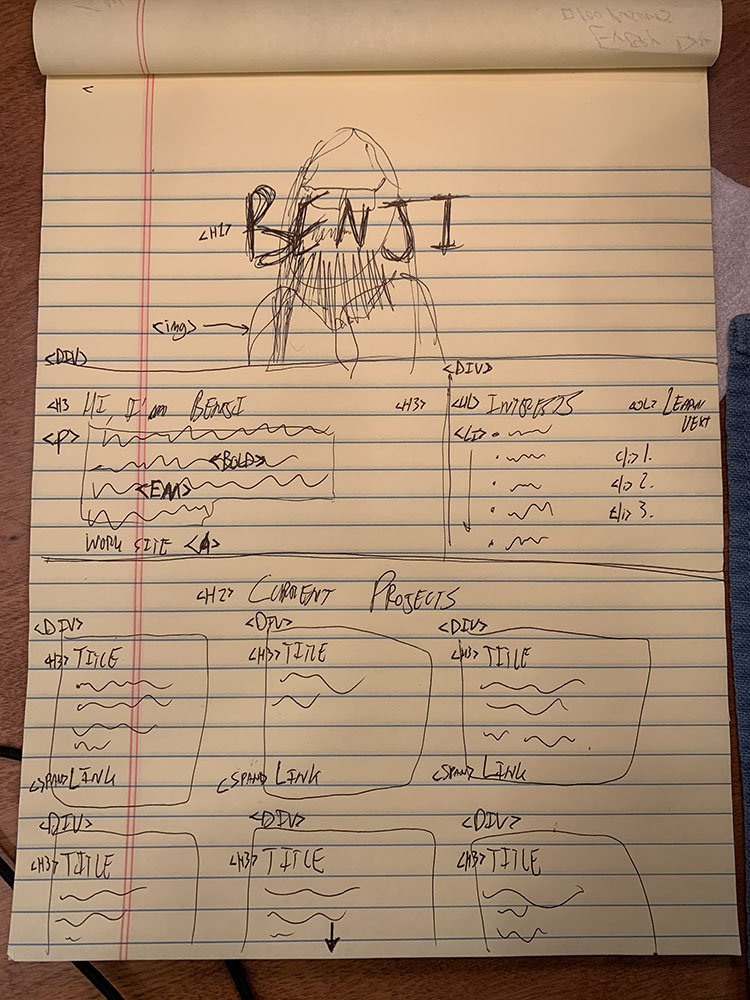 <
<H1> BENJI
<img>
<DIV>
<DIV>
<H3 HI, I'm BENJI
<P>
<BOLD>
<EM>
WORK SITE <A>
<H3> <UL> INTERESTS
<OL> LEARN
NEXT
<LI>
<li> 1.
<li> 2.
<li> 3.
<H2> CURRENT PROJECTS
<DIV>
<H3> TITLE
<SPAN> LINK
<DIV>
<H3> TITLE
<SPAN> LINK
<DIV>
<H3> TITLE
<SPAN> LINK
<DIV>
<H3> TITLE
<DIV>
<H3> TITLE
<DIV>
<H3> TITLE